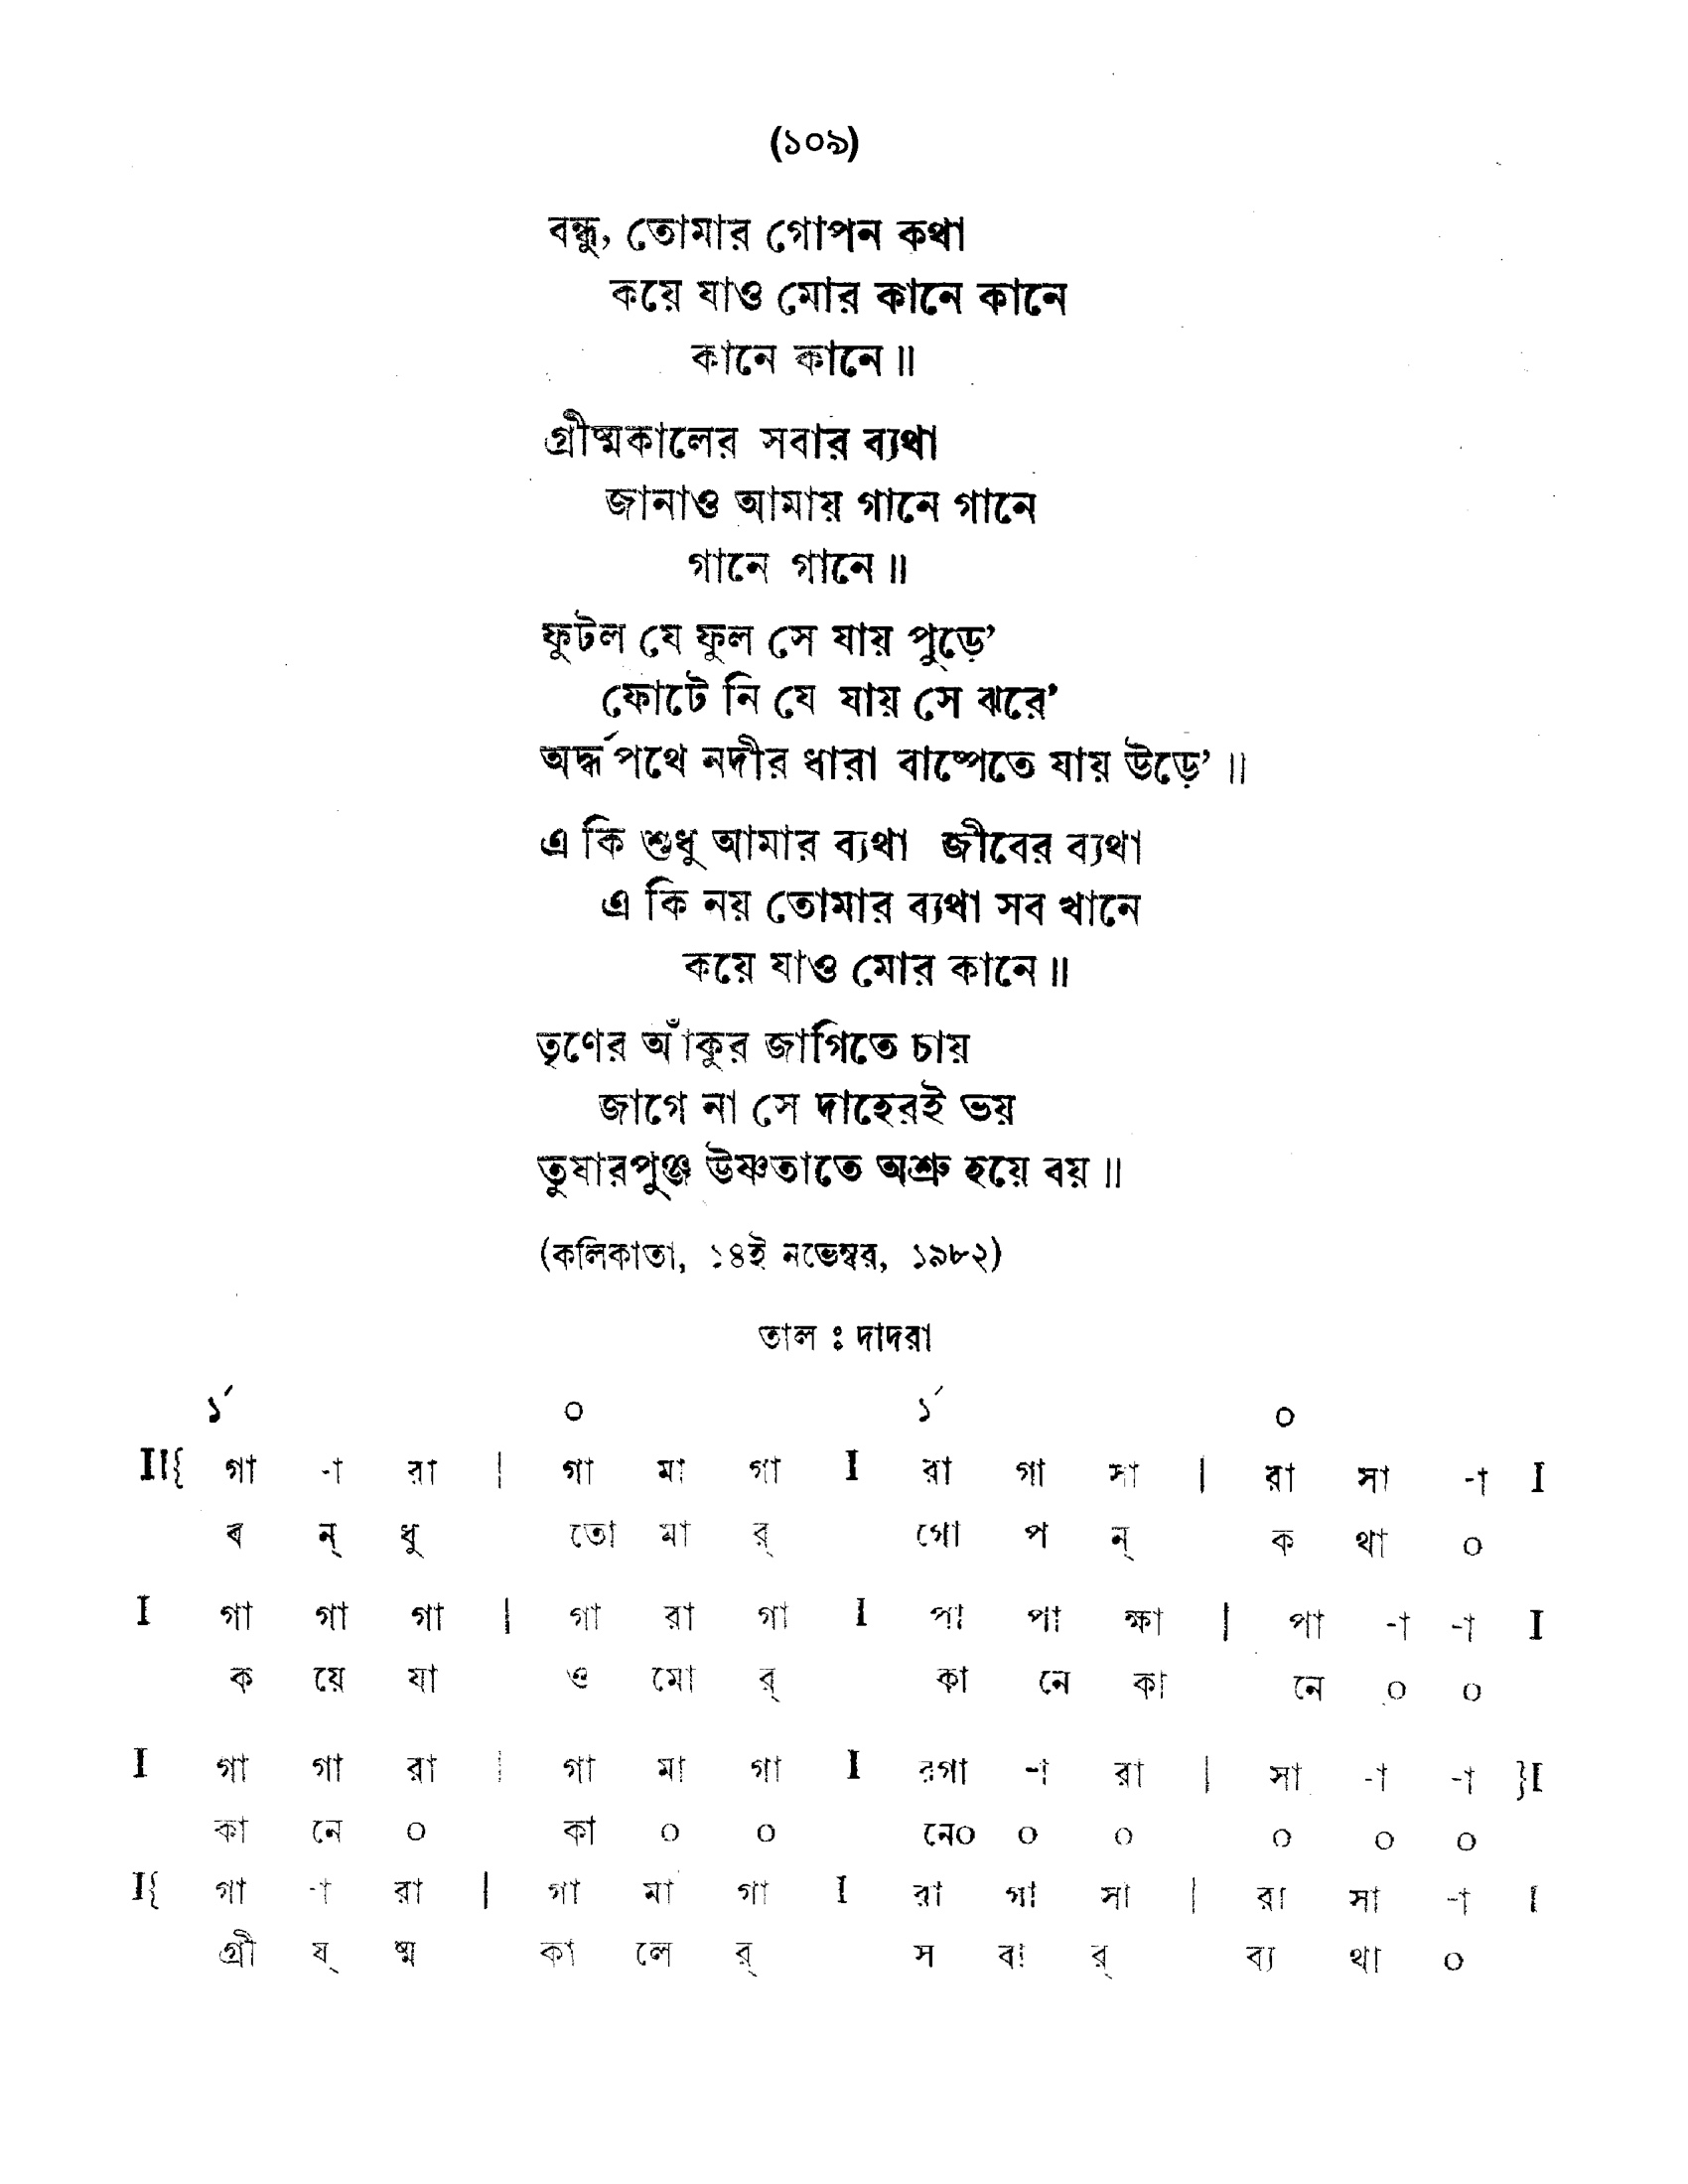 (১০৯)
বন্ধু, তোমার গোপন কথা
কয়ে যাও মোর কানে কানে
কানে কানে॥
গ্রীষ্মকালের সবার ব্যথা
জানাও আমায় গানে গানে
গানে গানে॥
ফুটল যে ফুল সে যায় পুড়ে’
ফোটে নি যে যায় সে ঝরে’
অর্দ্ধপথে নদীর ধারা বাষ্পেতে যায় উড়ে’॥
এ কি শুধু আমার ব্যথা জীবের ব্যথা
এ কি নয় তোমার ব্যথা সব খানে
কয়ে যাও মোর কানে॥
তৃণের আঁকুর জাগিতে চায়
জাগে না সে দাহেরই ভয়
তুষারপুঞ্জ উষ্ণতাতে অশ্রু হয়ে বয়॥
(কলিকাতা, ১৪ই নভেম্বর, ১৯৮২)
তাল ঃ দাদরা
১´ ০ ১´ ০
II{ গা -া রা | গা মা গা I রা গা সা | রা সা -া I
ব ন্ ধু তো মা র্ গো প ন্ ক থা ০
I গা গা গা | গা রা গা I পা পা ক্ষা | পা -া -া I
ক য়ে যা ও মো র্ কা নে কা নে ০ ০
I গা গা রা | গা মা গা I রগা -া রা | সা -া -া }I
কা নে ০ কা ০ ০ নে০ ০ ০ ০ ০ ০
I{ গা -া রা | গা মা গা I রা গা সা | রা সা -া I
গ্রী ষ্ ষ্ম কা লে র্ স বা র্ ব্য থা ০